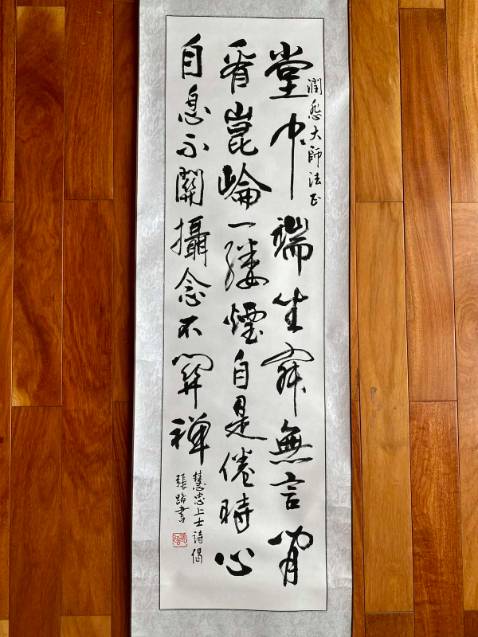 潤大師法正
堂中端坐寂無言閒
看崑崙一縷煙自是倦時心
自息不關攝念不關禪
慧忠上士詩偈
張書